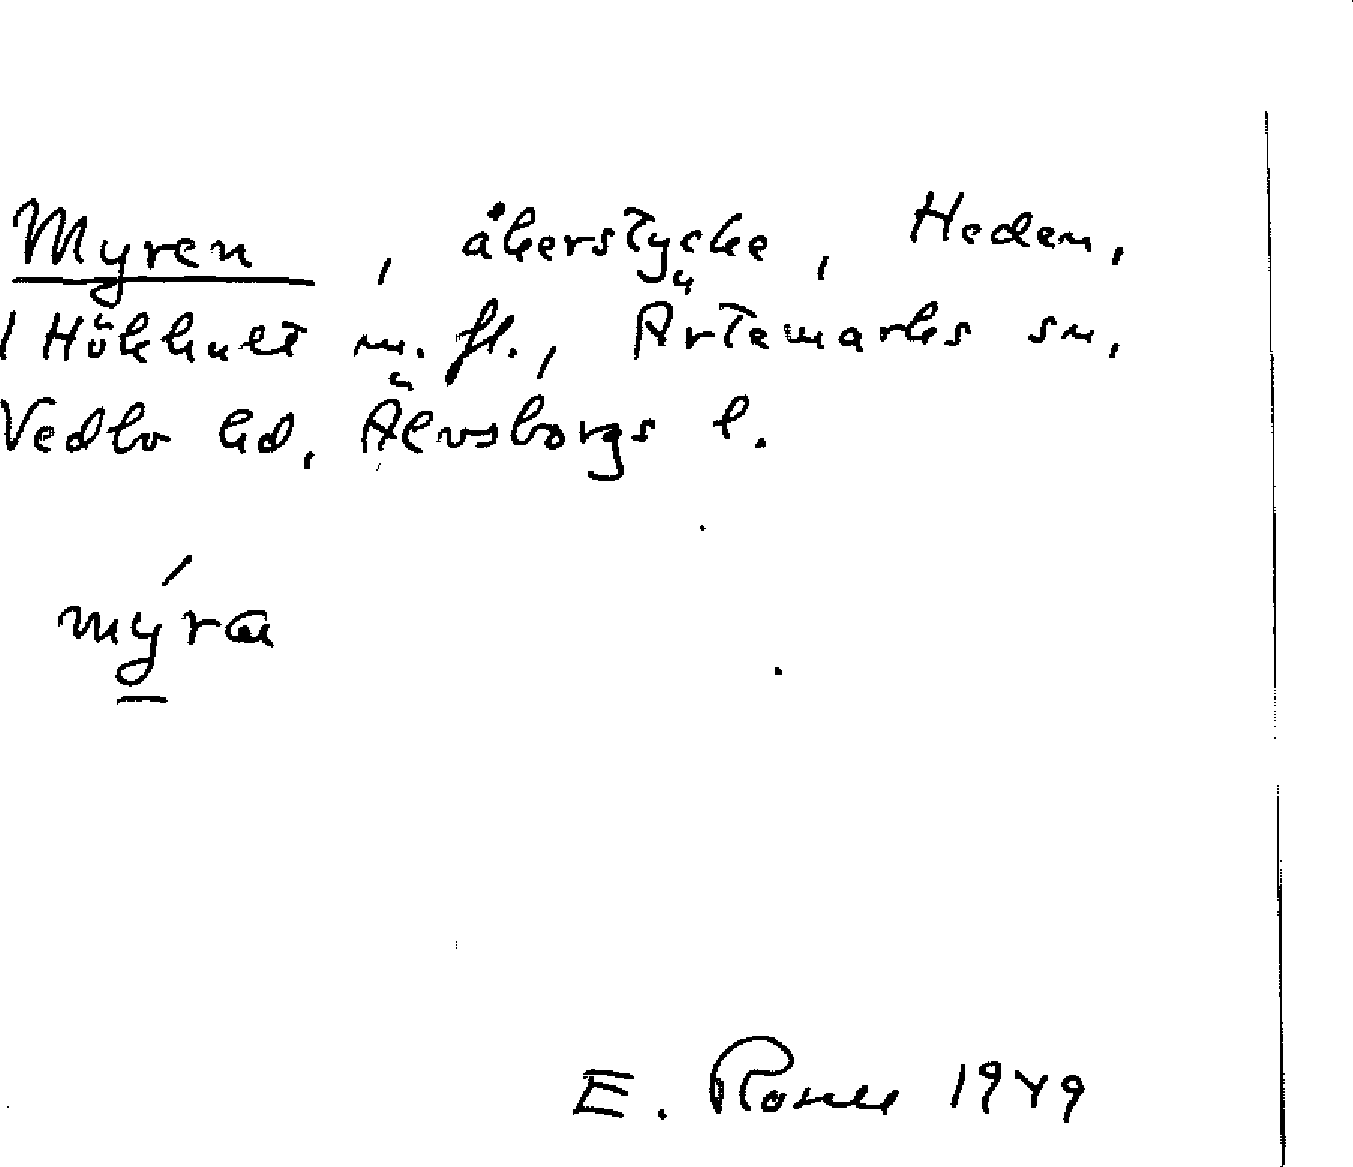 Myren, åkerstycke, Heden,
1 Hökhult m. fl., Ärtemarks sn,
Vedbo hd, Älvsborgs l.
mýra
E. 1949